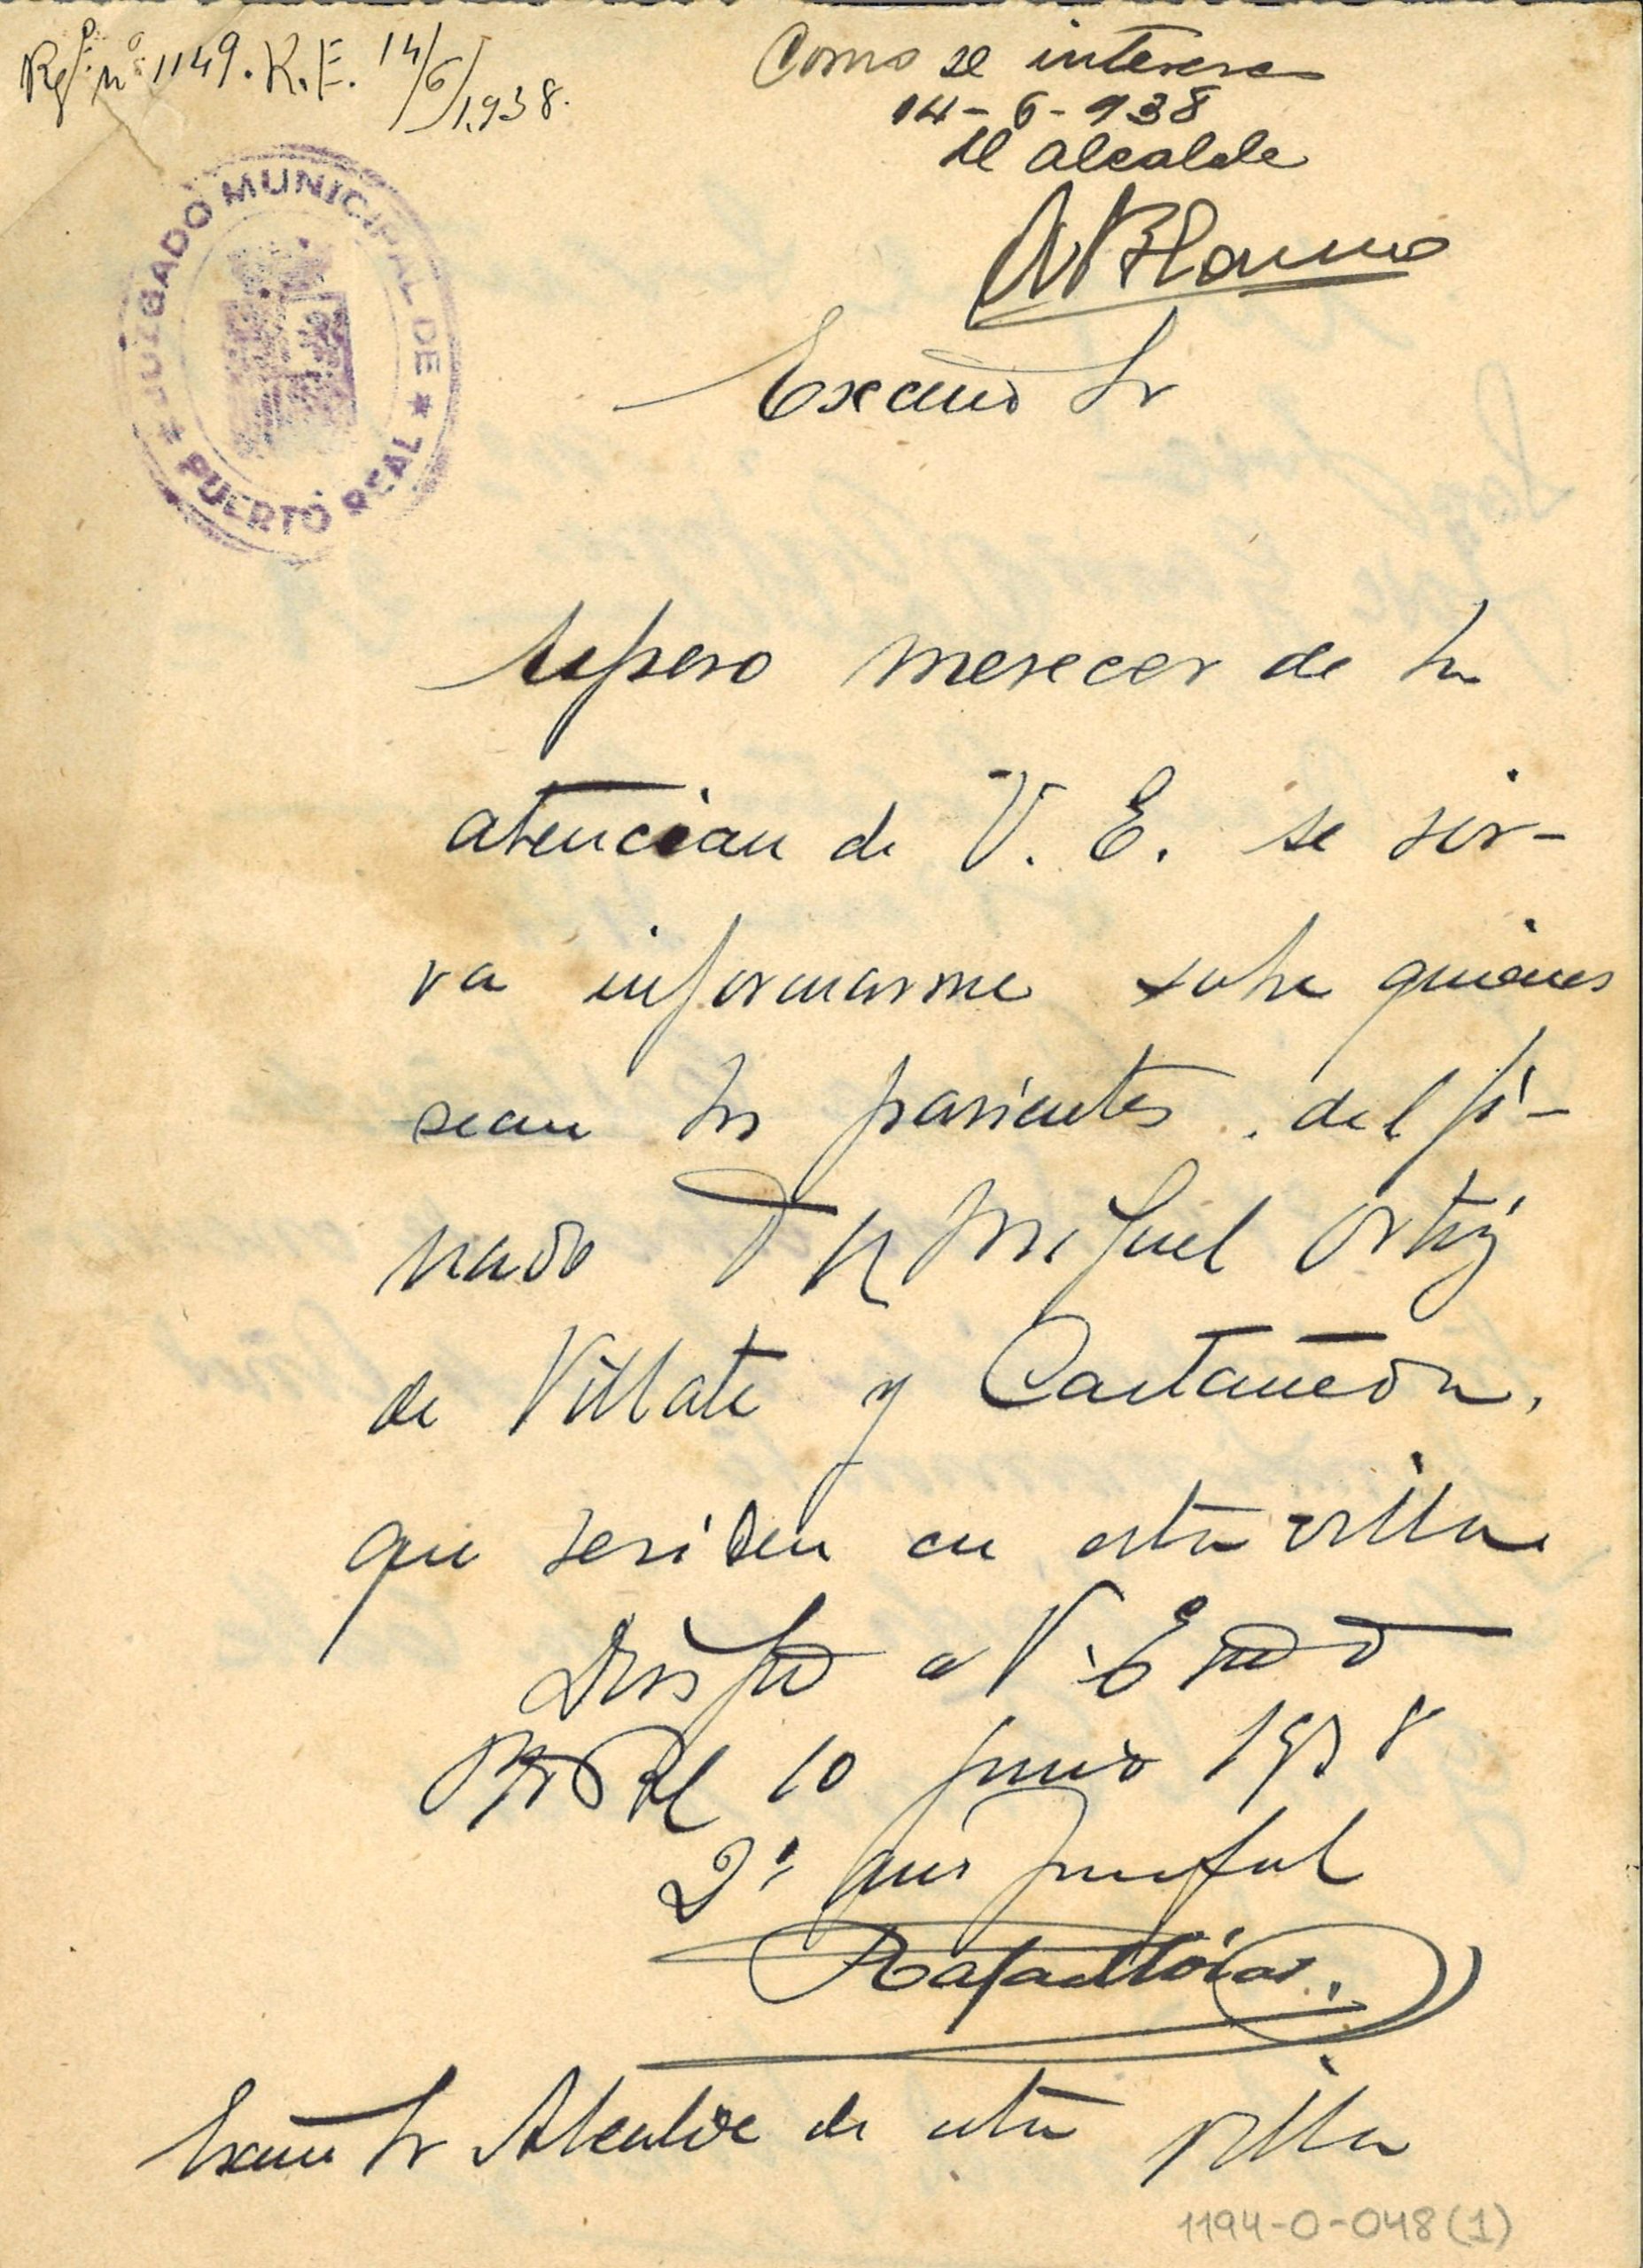 Regº nº 1149. R.E. 14/6/1938.
Como se interesa
14-6-938
El alcalde
JUZGADO MUNICIPAL DE
★ PUERTO REAL ★
Excmo Sr
Espero merecer de la
atencion de V. E. se sir-
va informarme sobre quienes
sean los parientes del fi-
nado Dn Miguel Ortiz
de Villate y Castañeda,
que residen en esta villa
Dios gue a V. E. m a
Pto Rl 10 junio 1938
Rafael
Excmo Sr Alcalde de esta villa
1194-0-048(1)